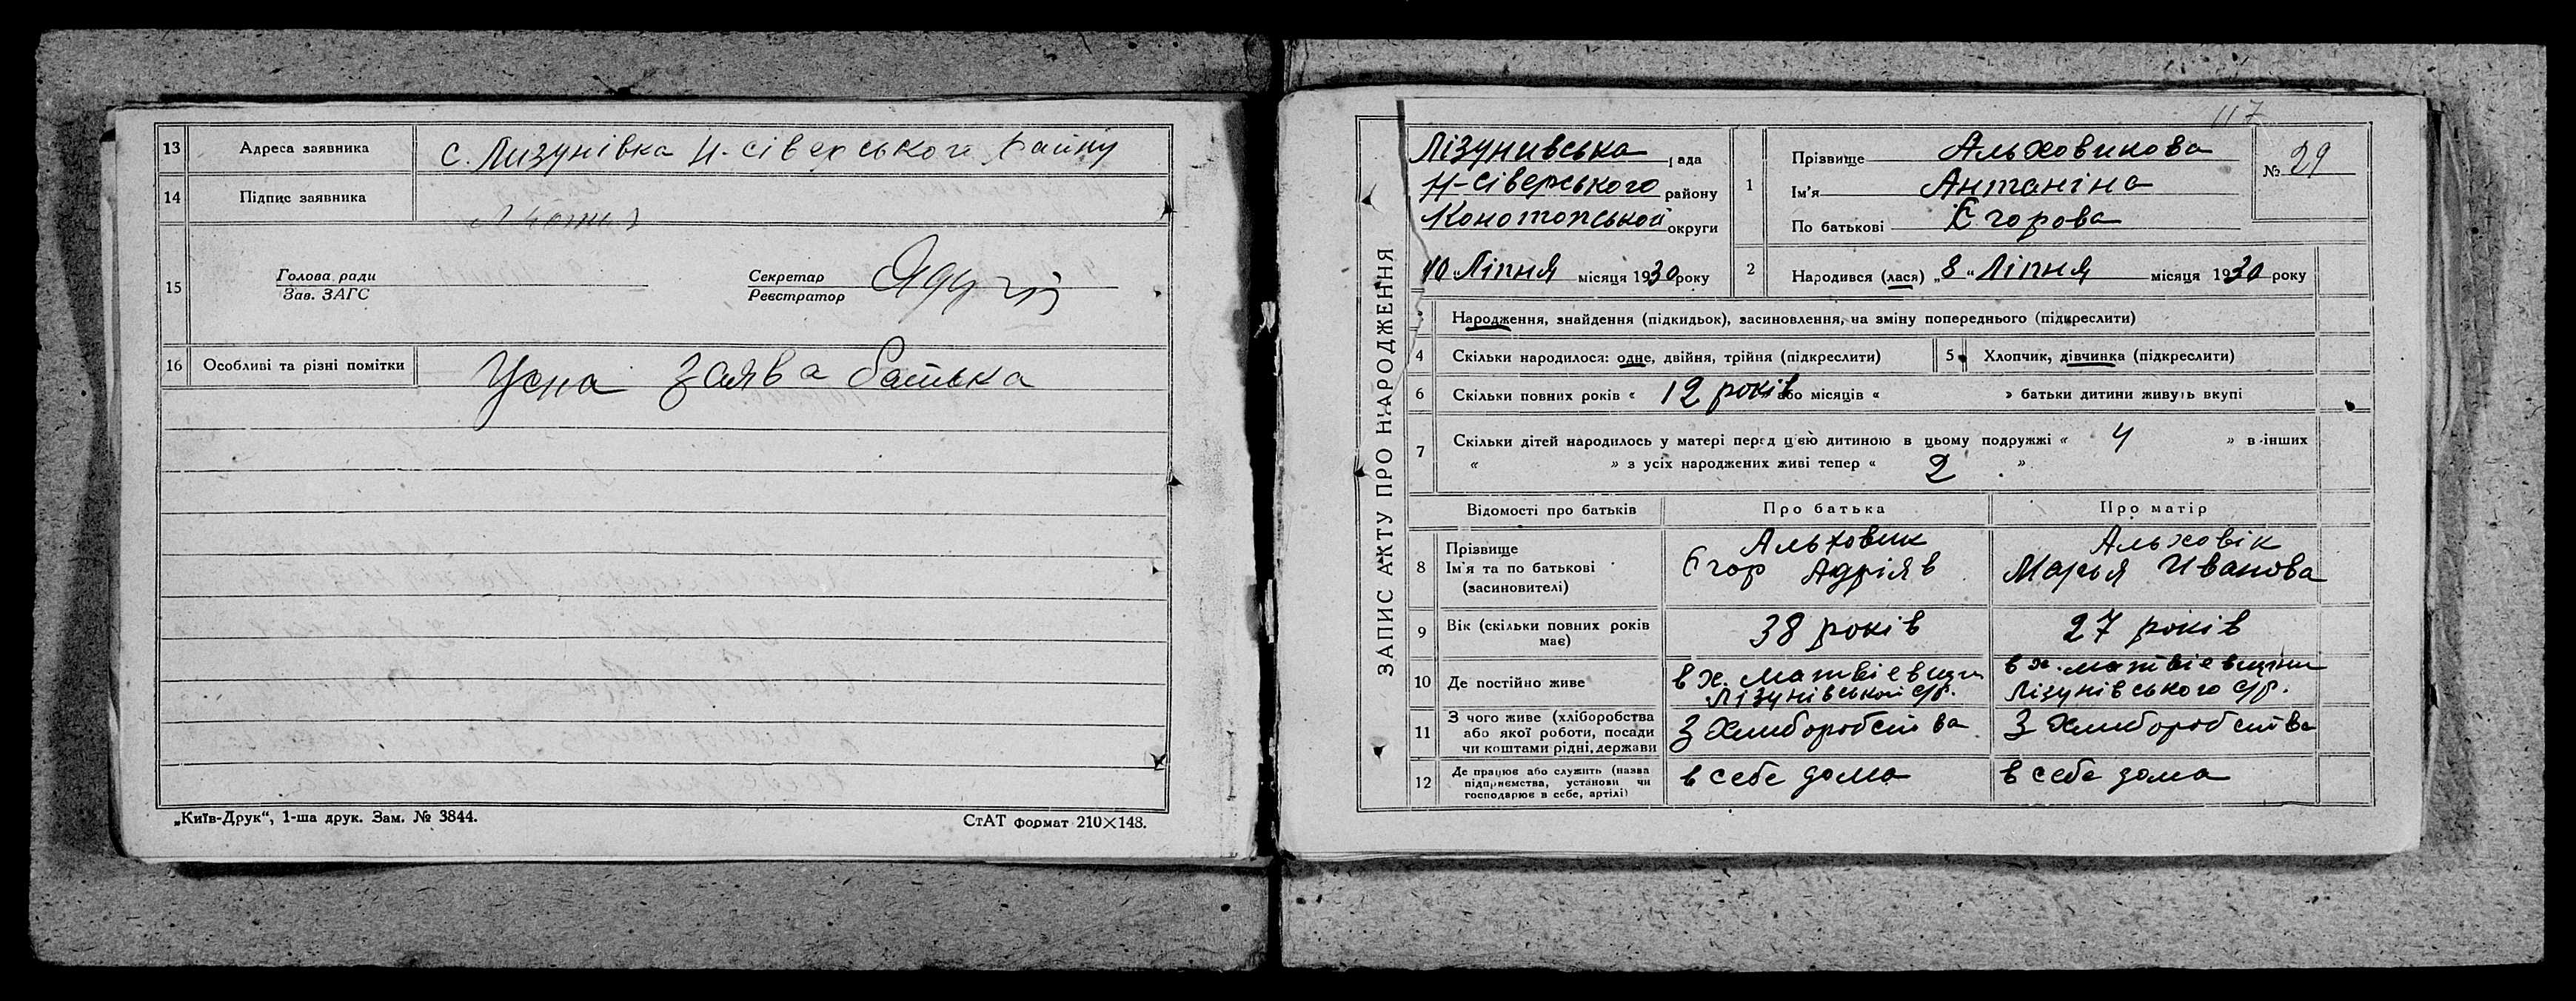 13 Адреса заявника с. Лизунівка Н-сіверського району
14 Підпис заявника
15 Голова ради
Зав. ЗАГС
Секретар
Реєстратор
16 Особливі та різні помітки Усна заява батька
„Київ-Друк“, 1-ша друк. Зам. № 3844.
СтАТ формат 210×148.
117
ЗАПИС АКТУ ПРО НАРОДЖЕННЯ
Лізунивська рада
Н-сіверського району
Конотопської округи
10 Ліпня місяця 1930 року
1 Прізвище Альховикова
Ім'я Антаніна
По батькові Єгорова
№ 29
2 Народився (лася) „8“ Ліпня місяця 1930 року
3 Народження, знайдення (підкидьок), засиновлення, на зміну попереднього (підкреслити)
4 Скільки народилося: одне, двійня, трійня (підкреслити)
5 Хлопчик, дівчинка (підкреслити)
6 Скільки повних років « 12 років » або місяців « » батьки дитини живуть вкупі
7 Скільки дітей народилось у матері перед цією дитиною в цьому подружжі « 4 » в інших
« » з усіх народжених живі тепер « 2 »
Відомості про батьків Про батька Про матір
8 Прізвище Альховик Альховік
Ім'я та по батькові Єгор Адріяв Марья Иванова
(засиновителі)
9 Вік (скільки повних років має) 38 років 27 років
10 Де постійно живе в х. Матвієвщин в х. матвієвщини
Лізунівської с/р. Лізунівського с/р.
11 З чого живе (хліборобства
або якої роботи, посади З Хлиборобства З Хлиборобства
чи коштами рідні, держави
12 Де працює або служить (назва
підприємства, установи чи в себе дома в себе дома
господарює в себе, артілі)